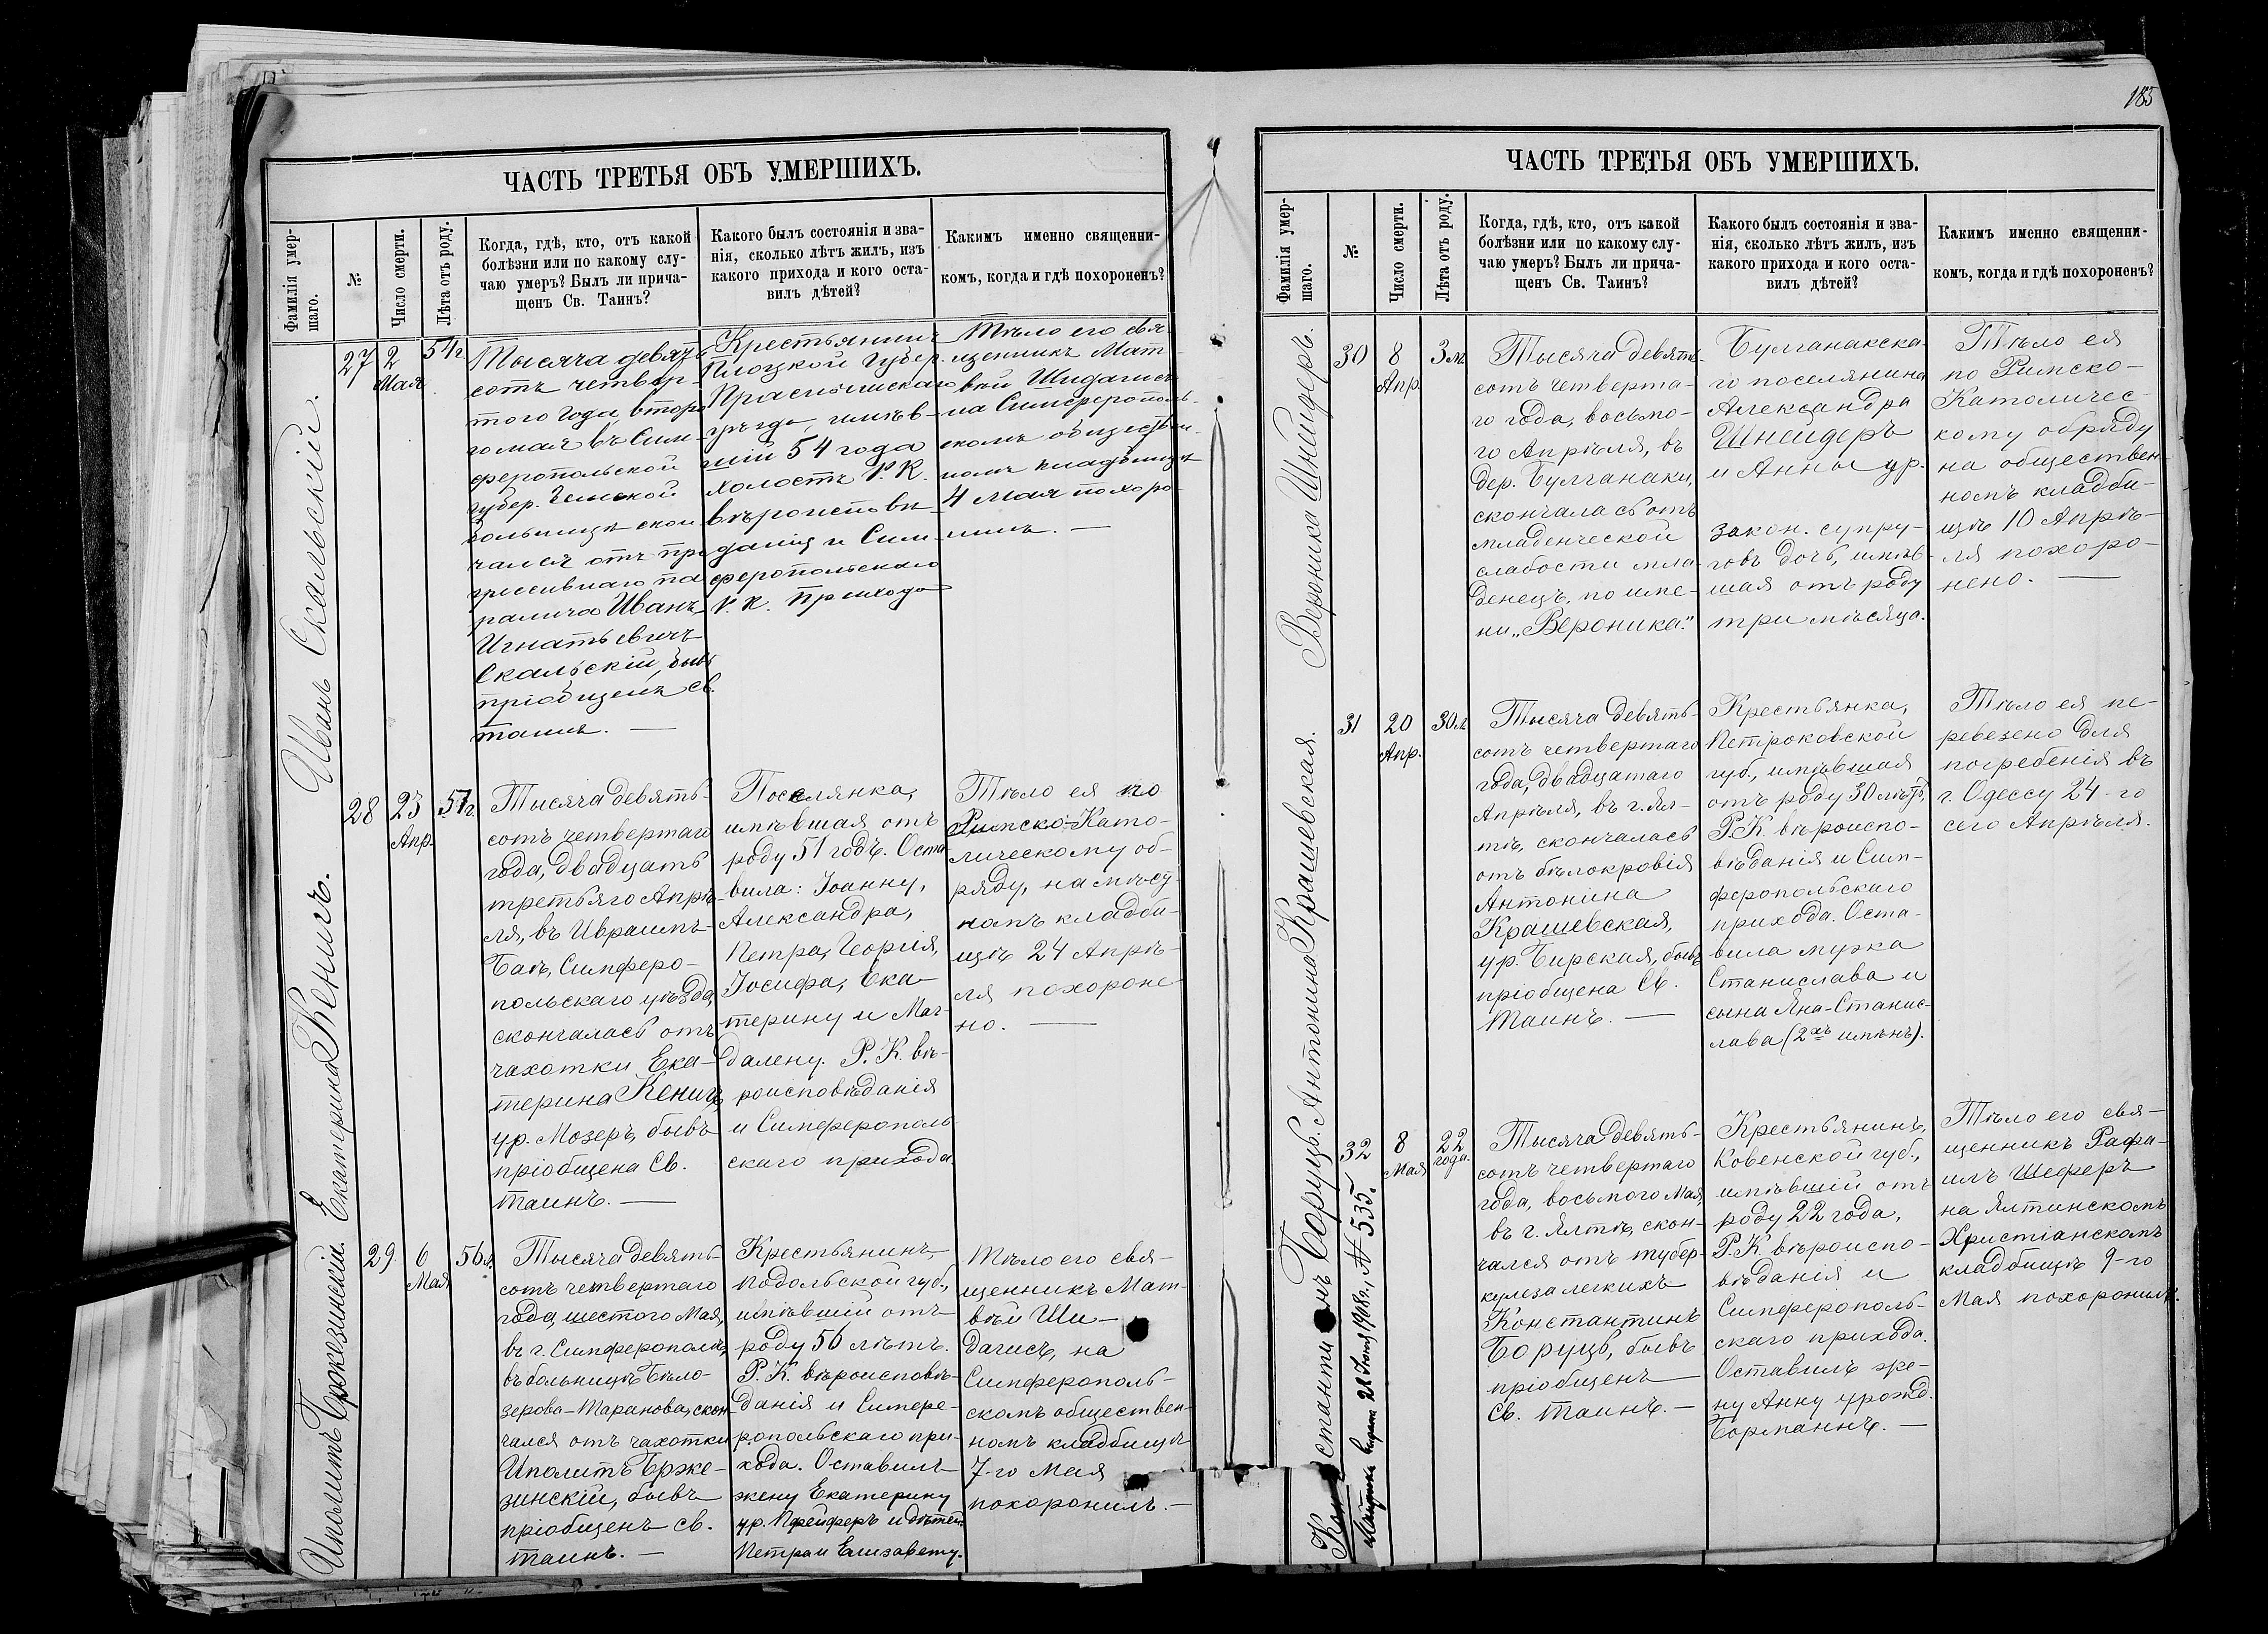 185
ЧАСТЬ ТРЕТЬЯ ОБЪ УМЕРШИХЪ.
Фамилія умер-
шаго.
№
Число смерти.
Лѣта отъ роду.
Когда, гдѣ, кто, отъ какой
болѣзни или по какому слу-
чаю умеръ? Былъ ли прича-
щенъ Св. Таинъ?
Какого былъ состоянія и зва-
нія, сколько лѣтъ жилъ, изъ
какого прихода и кого оста-
вилъ дѣтей?
Какимъ именно священни-
комъ, когда и гдѣ похороненъ?
Иванъ Скальскій.
27
2
Мая
54 г.
Тысяча девять
сотъ четвер-
того года, второ
го мая въ Сим-
феропольской
губер. Земской
больницѣ скон
чался отъ про
грессивнаго па
ралича Иванъ
Игнатьевичъ
Скальскій, бывъ
пріобщенъ Св.
таинъ. —
Крестьянинъ
Плоцкой Губер.
Праснышскаго
уѣзда, имѣв-
шій 54 года
холостъ Р. К.
вѣроисповѣ
данія и Сим-
феропольскаго
Р. К. Прихода
Тѣло его свя-
щенникъ Мат-
вѣй Шидагисъ
на Симферополь-
скомъ обществен-
номъ кладбищѣ
4 Мая похоро
нилъ. —
Екатерина Кенигъ.
28
23
Апр.
51 г.
Тысяча девять-
сотъ четвертаго
года, двадцать
третьяго Апрѣ-
ля, въ
Симферо-
польскаго уѣзда,
скончалась отъ
чахотки Ека-
терина Кенигъ,
ур. Мозеръ, бывъ
пріобщена Св.
таинъ. —
Поселянка,
имѣвшая отъ
роду 51 годъ. Оста-
вила: Іоанну,
Александра,
Петра, Георгія,
Іосифа, Ека-
терину и Маг-
далену. Р. К. вѣ-
роисповѣданія
и Симферополь
скаго прихода.
Тѣло ея по
Римско-Като-
лическому об-
ряду, на мѣст-
номъ кладби-
щѣ 24 Апрѣ-
ля похороне
но. —
Иполитъ Бржезинскій.
29
6
Мая
56 л.
Тысяча девять-
сотъ четвертаго
года, шестого Мая,
въ г. Симферополѣ,
въ больницѣ Бѣло-
зерова-Таранова, скон-
чался отъ чахотки
Иполитъ Брже-
зинскій, бывъ
пріобщенъ св.
таинъ. —
Крестьянинъ,
Подольской губ.,
имѣвшій отъ
роду 56 лѣтъ.
Р. К. вѣроисповѣ-
данія и Симфе-
ропольскаго при-
хода. Оставилъ
жену Екатерину
ур. Пфейферъ и дѣтей:
Петра и Елизавету.
Тѣло его свя-
щенникъ Мат-
вѣй Ши-
дагисъ, на
Симферополь-
скомъ обществен-
номъ кладбищѣ
7-го Мая
похоронилъ. —
ЧАСТЬ ТРЕТЬЯ ОБЪ УМЕРШИХЪ.
Фамилія умер-
шаго.
№
Число смерти.
Лѣта отъ роду.
Когда, гдѣ, кто, отъ какой
болѣзни или по какому слу-
чаю умеръ? Былъ ли прича-
щенъ Св. Таинъ?
Какого былъ состоянія и зва-
нія, сколько лѣтъ жилъ, изъ
какого прихода и кого оста-
вилъ дѣтей?
Какимъ именно священни-
комъ, когда и гдѣ похороненъ?
Вероника Шнейдеръ.
30
8
Апр.
3 м.
Тысяча девять-
сотъ четверта-
го года, восьмо-
го Апрѣля, въ
дер. Булганаки,
скончалась отъ
младенческой
слабости мла-
денецъ, по име-
ни „Вероника".
Булганакска-
го поселянина
Александра
Шнейдеръ
и Анны ур.
закон. супру-
говъ дочь, имѣв-
шая отъ роду
три мѣсяца.
Тѣло ея
по Римско-
Католичес-
кому обряду
на обществен-
номъ кладби-
щѣ 10 Апрѣ-
ля похоро-
нено. —
Антонина Крашевская.
31
20
Апр.
30 л.
Тысяча девять-
сотъ четвертаго
года, двадцатаго
Апрѣля, въ г. Ял-
тѣ, скончалась
отъ бѣлокровія
Антонина
Крашевская,
ур. Бирская, бывъ
пріобщена Св.
Таинъ. —
Крестьянка,
Петроковской
губ., имѣвшая
отъ роду 30 лѣтъ,
Р. К. вѣроиспо-
вѣданія и Сим-
феропольскаго
прихода. Оста-
вила мужа
Станислава и
сына Яна-Станис-
лава (2хъ именъ).
Тѣло ея пе-
ревезено для
погребенія въ
г. Одессу 24-го
сего Апрѣля.
Константинъ Боруцъ.
28 1908 г., № 535.
32
8
Мая
22
года.
Тысяча девять-
сотъ четвертаго
года, восьмого Мая,
въ г. Ялтѣ, скон-
чался отъ тубер-
кулеза легкихъ
Константинъ
Боруцъ, бывъ
пріобщенъ
Св. таинъ. —
Крестьянинъ,
Ковенской губ.,
имѣвшій отъ
роду 22 года,
Р. К. вѣроиспо-
вѣданія и
Симферополь-
скаго прихода.
Оставилъ же-
ну Анну урожд.
Борманнъ. —
Тѣло его свя-
щенникъ Рафа-
илъ Шеферъ
на Ялтинскомъ
Христіанскомъ
кладбищѣ 9-го
Мая похоронилъ.